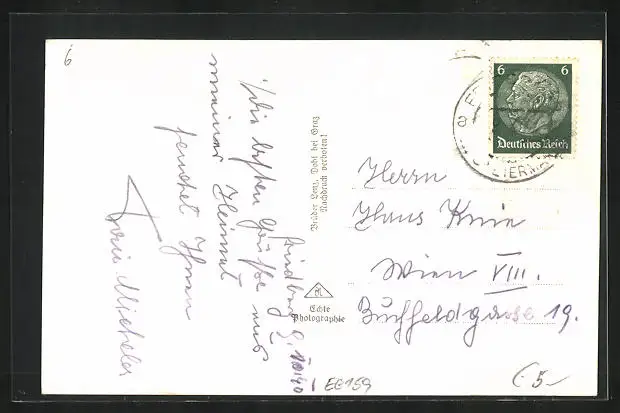 6
Die besten Grüße aus
meiner Heimat
sendet Ihnen
Friedberg 9.
Brüder Lenz, Dobl bei Graz
Nachdruck verboten!
Echte
Photographie
6 6
Deutsches Reich
STEIERMARK
Herrn
Hans Knie
Wien VIII.
Buchfeldgasse 19.
EE159
5.-